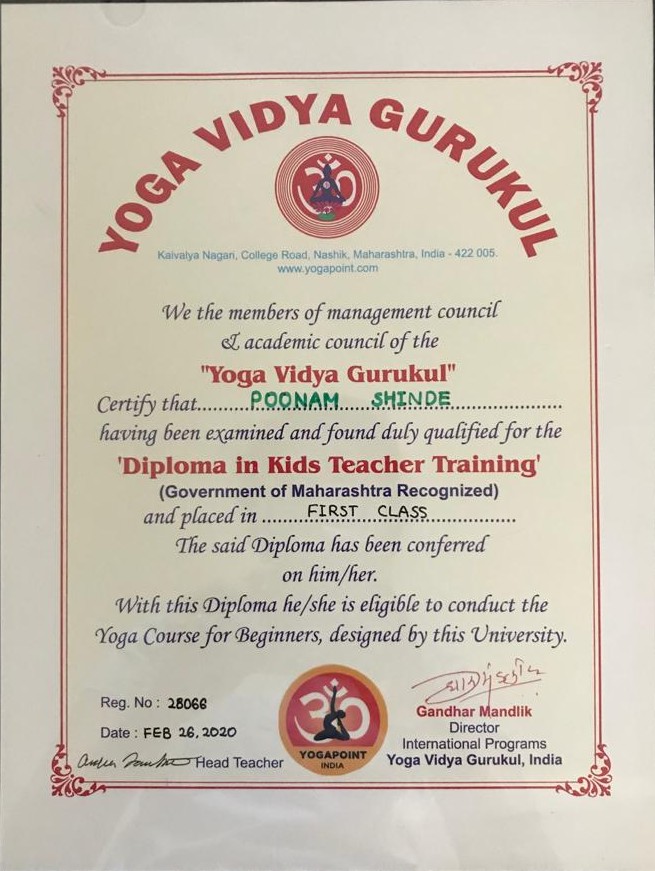 YOGA VIDYA GURUKUL
Kaivalya Nagari, College Road, Nashik, Maharashtra, India - 422 005.
www.yogapoint.com
We the members of management council
& academic council of the
"Yoga Vidya Gurukul"
Certify that..........POONAM SHINDE....................
having been examined and found duly qualified for the
'Diploma in Kids Teacher Training'
(Government of Maharashtra Recognized)
and placed in ........FIRST CLASS................
The said Diploma has been conferred
on him/her.
With this Diploma he/she is eligible to conduct the
Yoga Course for Beginners, designed by this University.
Reg. No : 28066
Date : FEB 26, 2020
Head Teacher
YOGAPOINT
INDIA
Gandhar Mandlik
Director
International Programs
Yoga Vidya Gurukul, India